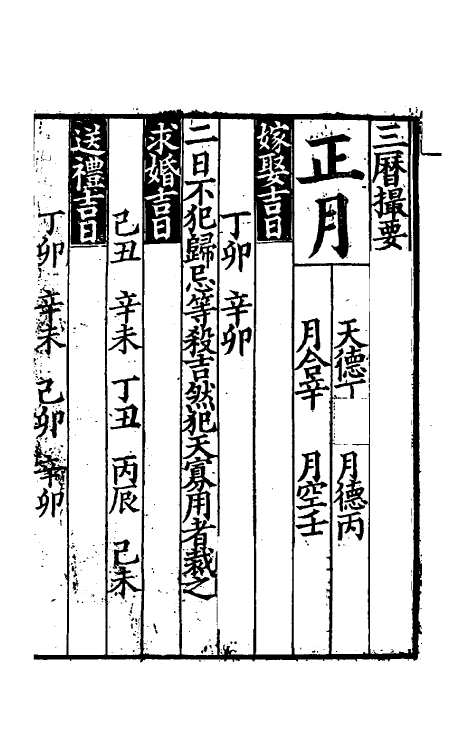 三曆撮要
正月
天德丁 月德丙
月合辛 月空壬
嫁娶吉日
丁卯 辛卯
二日不犯歸忌等殺吉然犯天寡用者裁之
求婚吉日
己丑 辛未 丁丑 丙辰 己未
送禮吉日
丁卯 辛未 己卯 辛卯